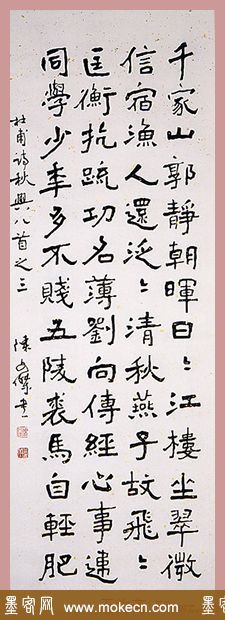 千家山郭靜朝暉日〻江樓坐翠微
信宿漁人還泛〻清秋燕子故飛〻
匡衡抗疏功名薄劉向傳經心事違
同學少年多不賤五陵裘馬自輕肥
杜甫詩秋興八首之三 陳文傑書
墨客网 www.mokecn.com 墨客网